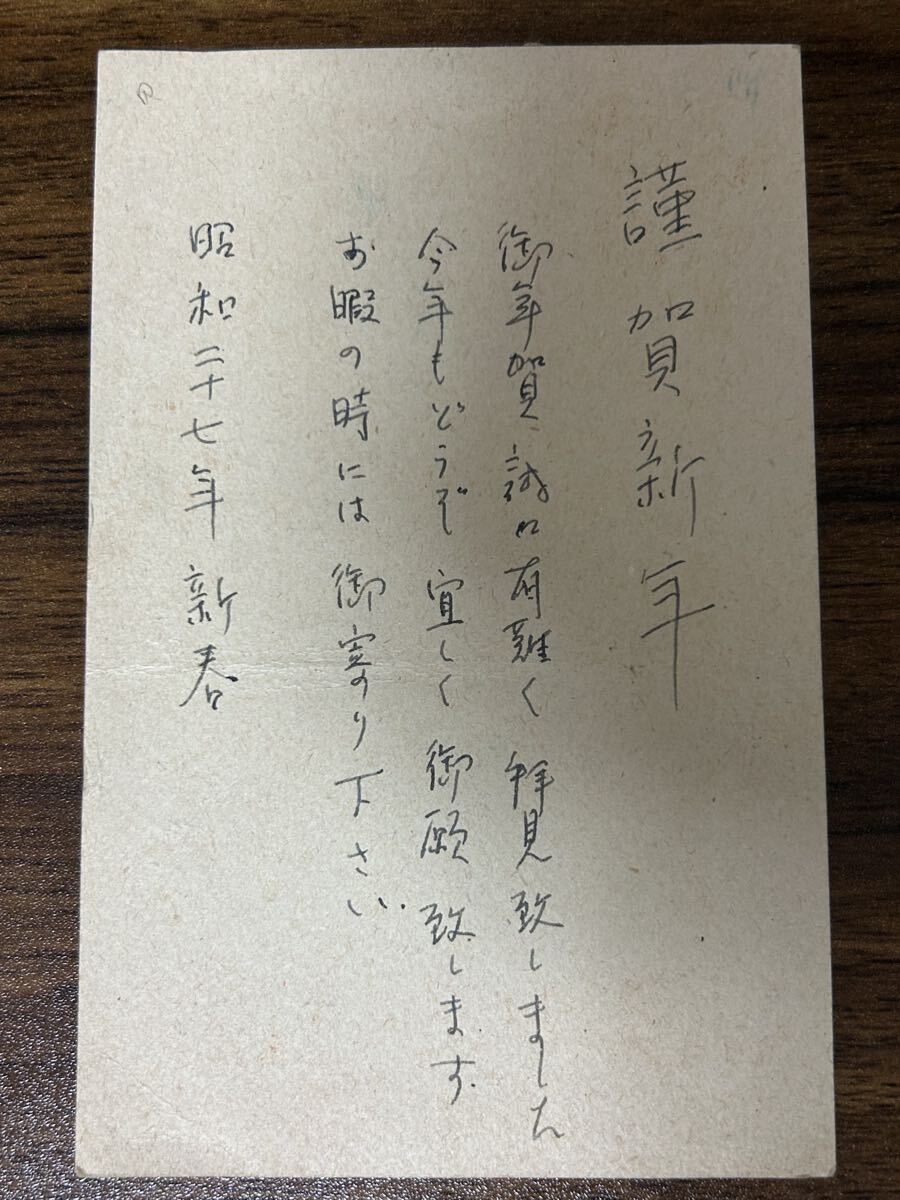 謹賀新年
御年賀誠に有難く拝見致しました
今年もどうぞ宜しく御願致します
お暇の時には御寄り下さい
昭和二十七年新春